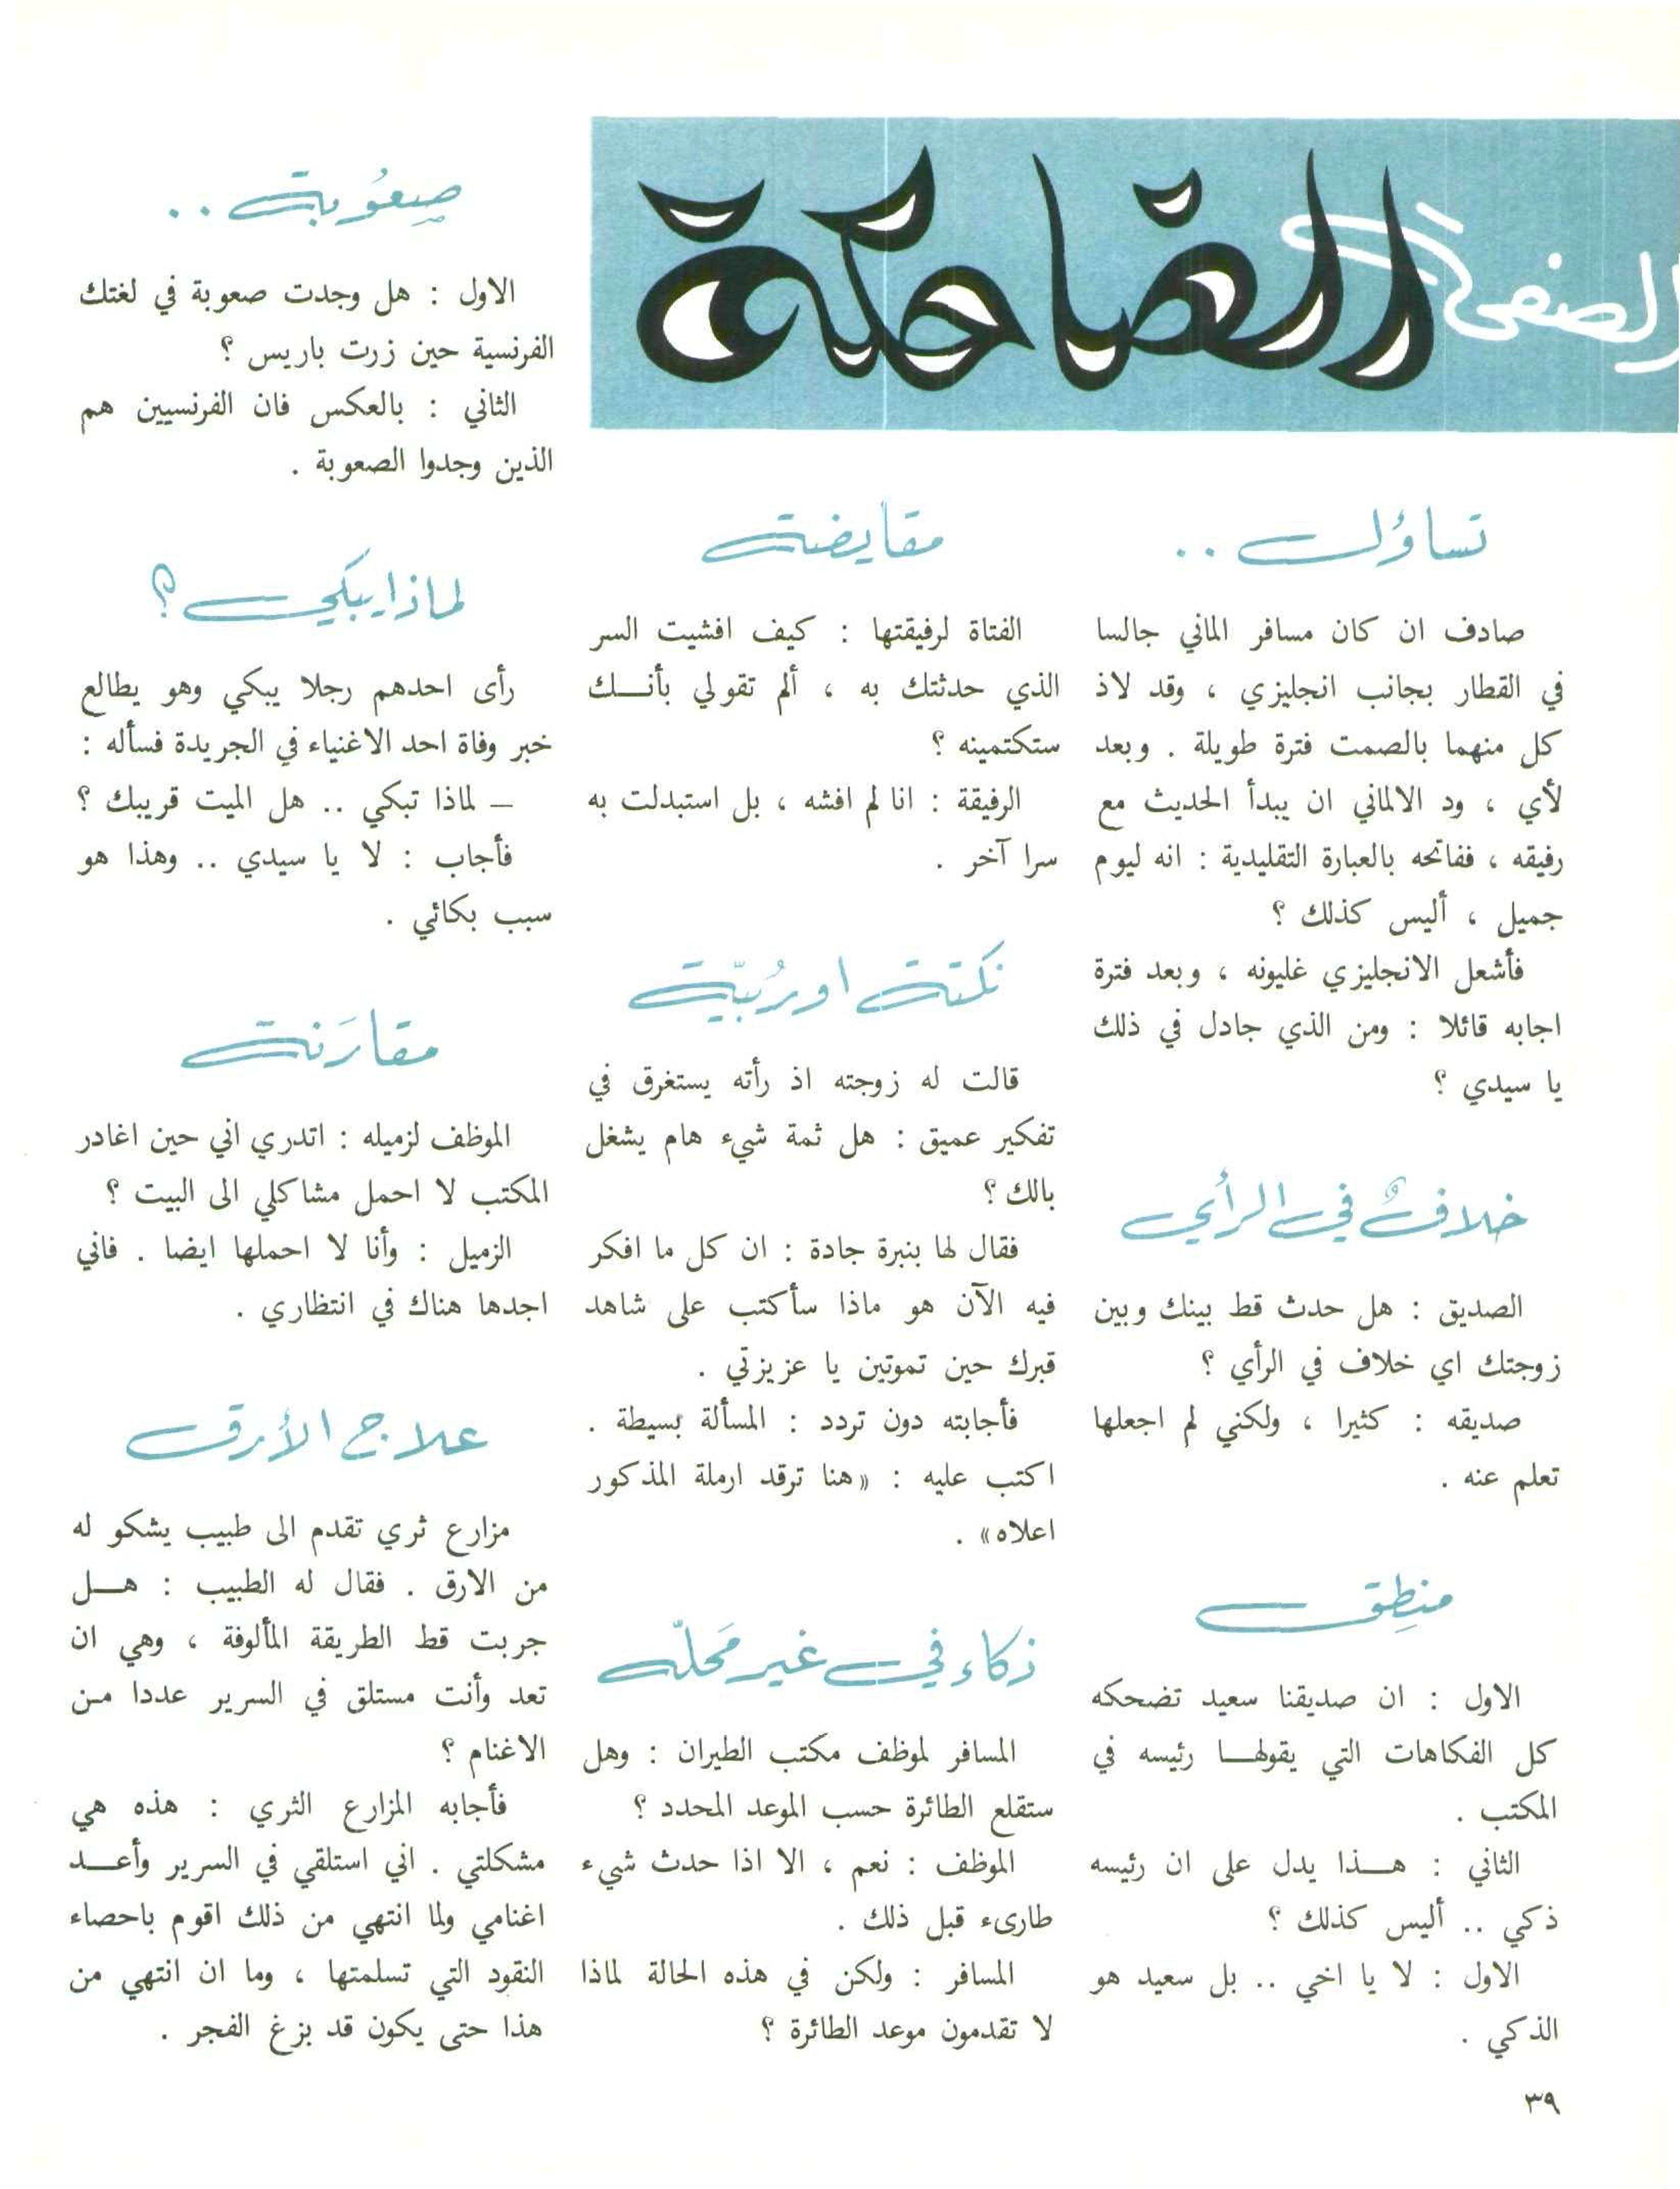 الصفحة الضاحكة
تساؤل ..
صادف ان كان مسافر الماني جالسا
في القطار بجانب انجليزي ، وقد لاذ
كل منهما بالصمت فترة طويلة . وبعد
لأي ، ود الالماني ان يبدأ الحديث مع
رفيقه ، ففاتحه بالعبارة التقليدية : انه ليوم
جميل ، أليس كذلك ؟
فأشعل الانجليزي غليونه ، وبعد فترة
اجابه قائلا : ومن الذي جادل في ذلك
يا سيدي ؟
خلافٌ في الرأي
الصديق : هل حدث قط بينك وبين
زوجتك اي خلاف في الرأي ؟
صديقه : كثيرا ، ولكني لم اجعلها
تعلم عنه .
منطِق
الاول : ان صديقنا سعيد تضحكه
كل الفكاهات التي يقولهـا رئيسه في
المكتب .
الثاني : هـذا يدل على ان رئيسه
ذكي .. أليس كذلك ؟
الاول : لا يا اخي .. بل سعيد هو
الذكي .
مقايضة
الفتاة لرفيقتها : كيف افشيت السر
الذي حدثتك به ، ألم تقولي بأنـك
ستكتمينه ؟
الرفيقة : انا لم افشه ، بل استبدلت به
سرا آخر .
نكتة اورُبيّة
قالت له زوجته اذ رأته يستغرق في
تفكير عميق : هل ثمة شيء هام يشغل
بالك ؟
فقال لها بنبرة جادة : ان كل ما افكر
فيه الآن هو ماذا سأكتب على شاهد
قبرك حين تموتين يا عزيزتي .
فأجابته دون تردد : المسألة بسيطة .
اكتب عليه : «هنا ترقد ارملة المذكور
اعلاه» .
ذكاء في غير مَحلّه
المسافر لموظف مكتب الطيران : وهل
ستقلع الطائرة حسب الموعد المحدد ؟
الموظف : نعم ، الا اذا حدث شيء
طارىء قبل ذلك .
المسافر : ولكن في هذه الحالة لماذا
لا تقدمون موعد الطائرة ؟
صعُوبة ..
الاول : هل وجدت صعوبة في لغتك
الفرنسية حين زرت باريس ؟
الثاني : بالعكس فان الفرنسيين هم
الذين وجدوا الصعوبة .
لماذا يبكي ؟
رأى احدهم رجلا يبكي وهو يطالع
خبر وفاة احد الاغنياء في الجريدة فسأله :
– لماذا تبكي .. هل الميت قريبك ؟
فأجاب : لا يا سيدي .. وهذا هو
سبب بكائي .
مقارَنة
الموظف لزميله : اتدري اني حين اغادر
المكتب لا احمل مشاكلي الى البيت ؟
الزميل : وأنا لا احملها ايضا . فاني
اجدها هناك في انتظاري .
علاج الأرق
مزارع ثري تقدم الى طبيب يشكو له
من الارق . فقال له الطبيب : هـل
جربت قط الطريقة المألوفة ، وهي ان
تعد وأنت مستلق في السرير عددا مـن
الاغنام ؟
فأجابه المزارع الثري : هذه هي
مشكلتي . اني استلقي في السرير وأعـد
اغنامي ولما انتهي من ذلك اقوم باحصاء
النقود التي تسلمتها ، وما ان انتهي من
هذا حتى يكون قد بزغ الفجر .
٣٩